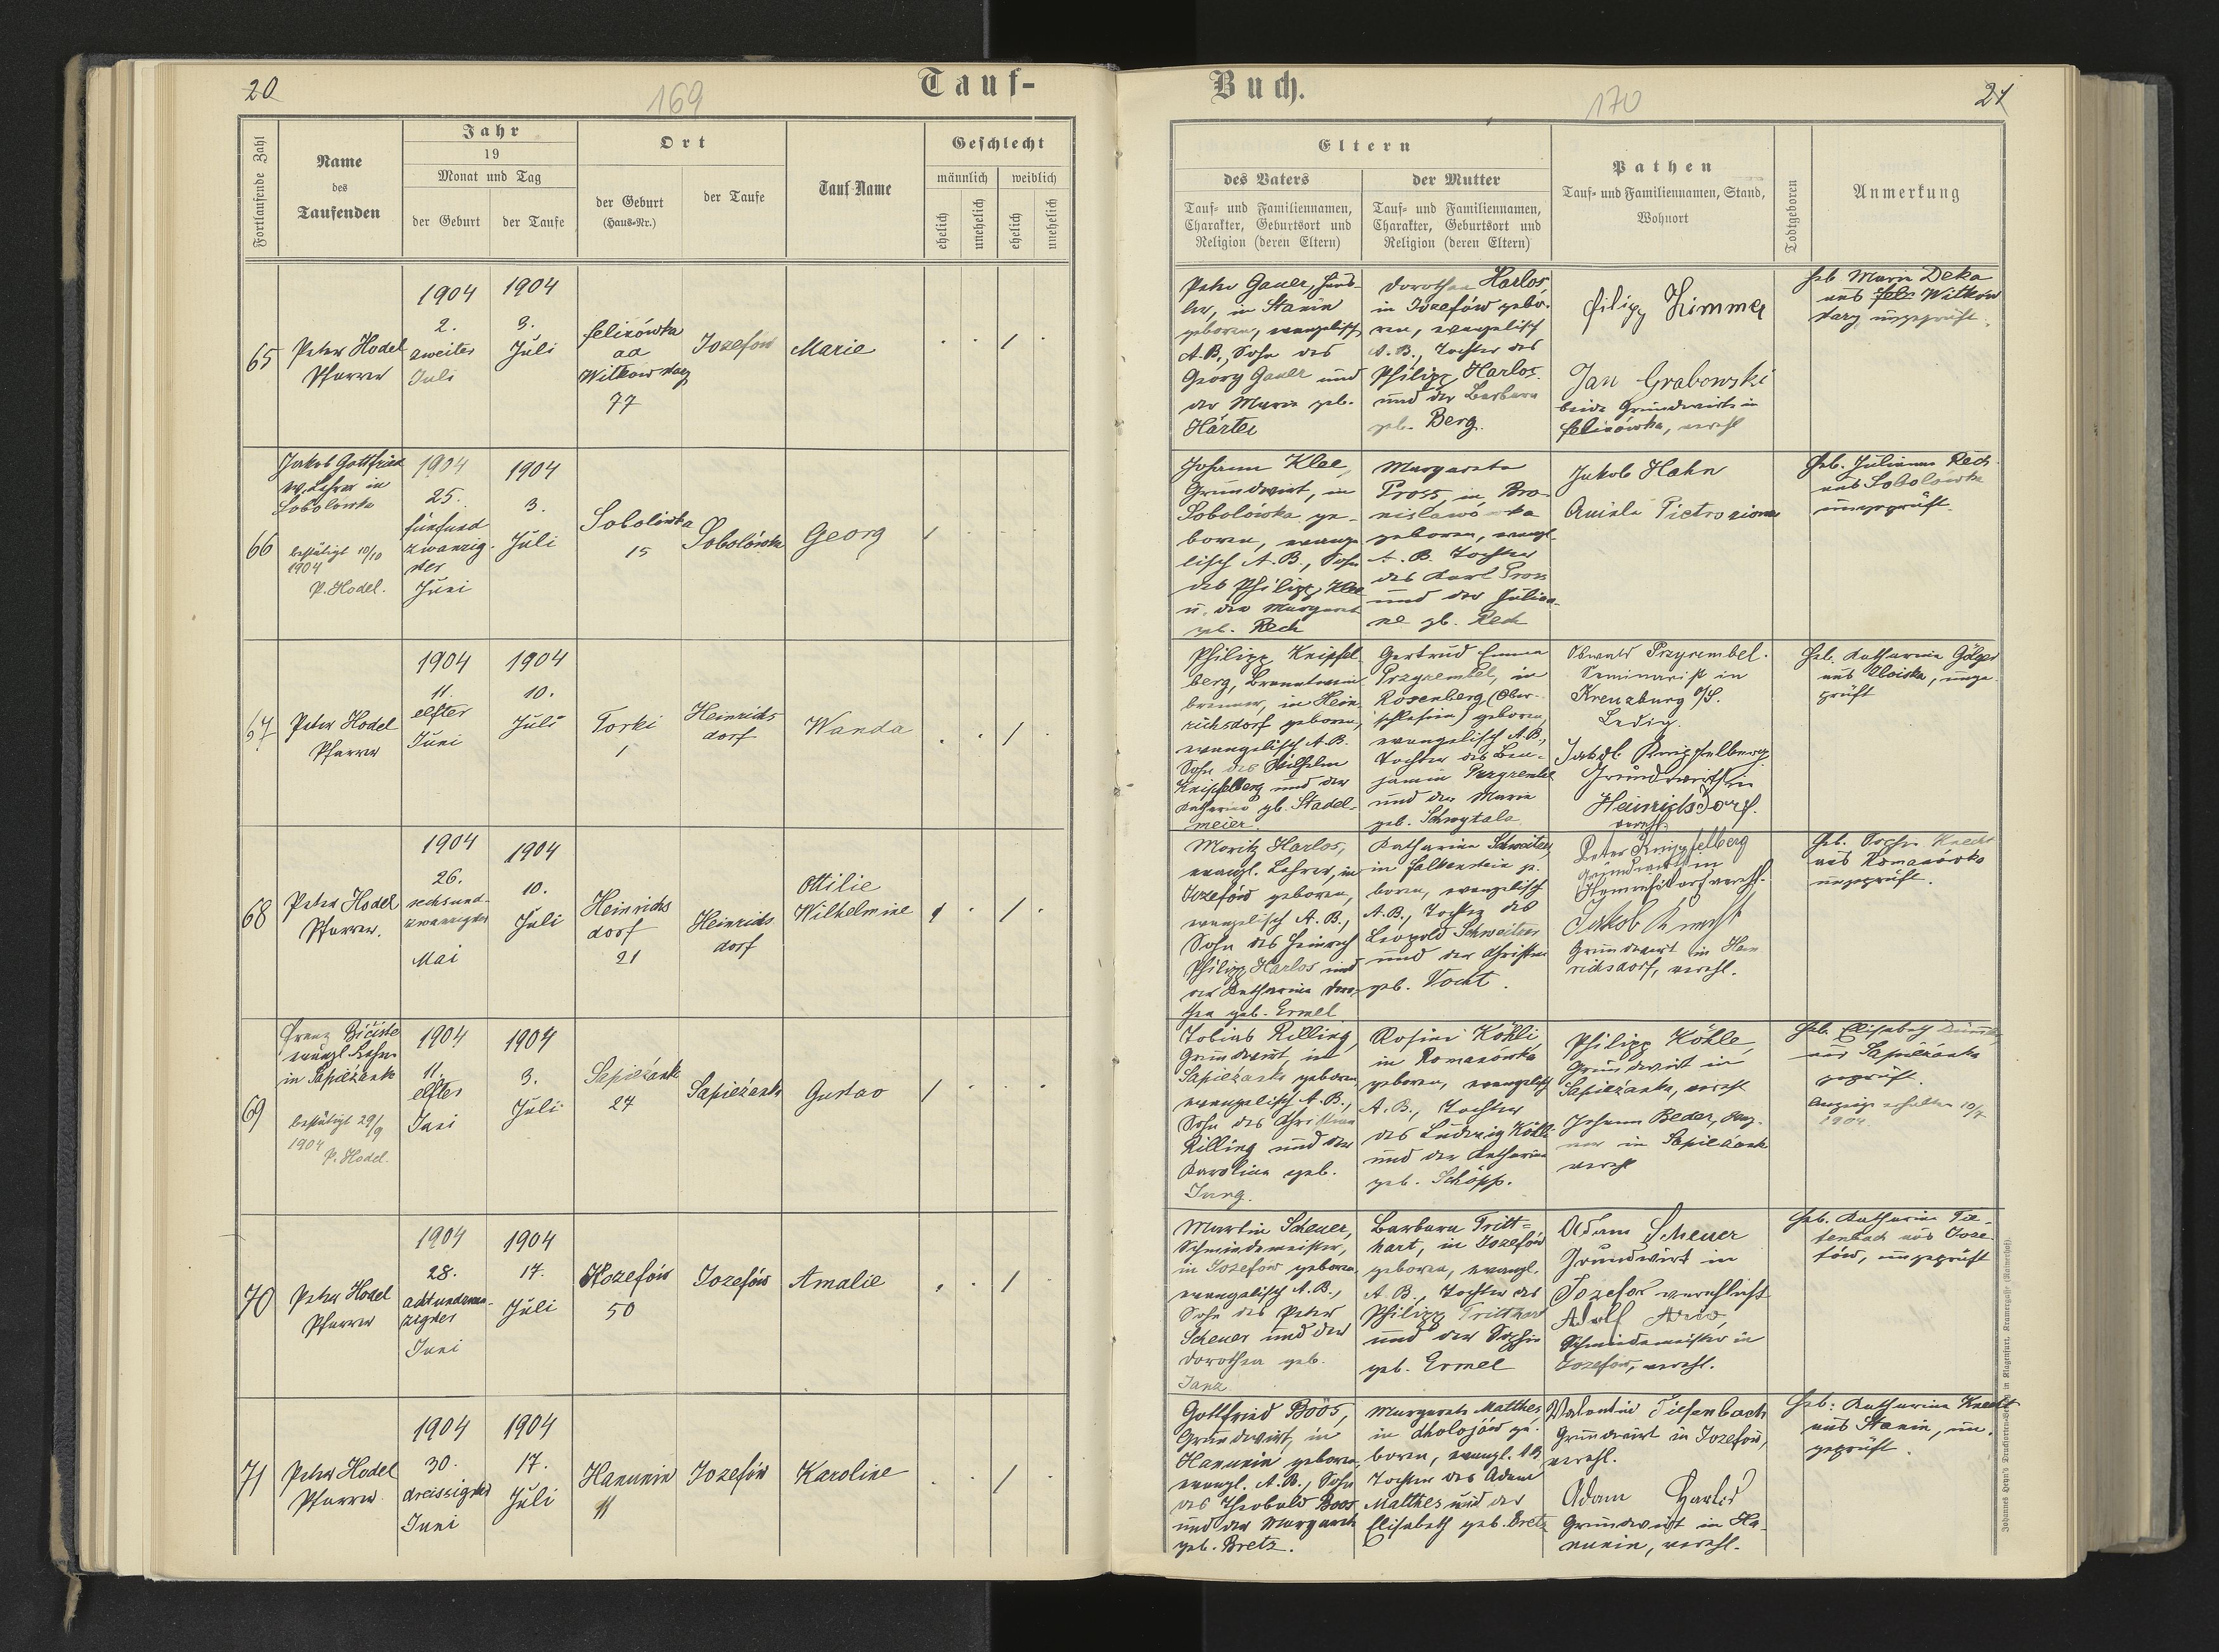 20
169
Tauf-
Fortlaufende Zahl
Name
des
Taufenden
Jahr
19
Monat und Tag
der Geburt
der Taufe
Ort
der Geburt
(Haus-Nr.)
der Taufe
Tauf-Name
Geschlecht
männlich
weiblich
ehelich
unehelich
ehelich
unehelich
65
Peter Hodel
Pfarrer
1904
2.
zweiter
Juli
1904
3.
Juli
Felizówka
ad
Witkow stary
77
Jozefow
Marie
66
Jakob Gottfried
Lehrer in
Sobolówka
bestätigt 10/10
1904
P. Hodel.
1904
25.
fünfund
zwanzig-
ster
Juni
1904
3.
Juli
Sobolówka
15
Sobolówka
Georg
67
Peter Hodel
Pfarrer
1904
11.
elfter
Juni
1904
10.
Juli
Torki
1
Heinrichs
dorf
Wanda
68
Peter Hodel
Pfarrer.
1904
26.
sechsund-
zwanzigster
Mai
1904
10.
Juli
Heinrichs
dorf
21
Heinrichs
dorf
Ottilie
Wilhelmine
69
Franz
evangl. Lehrer
in Sapieżanka
bestätigt 29/9
1904
P. Hodel.
1904
11.
elfter
Juni
1904
3.
Juli
Sapieżanka
27
Sapieżanka
Gustav
70
Peter Hodel
Pfarrer
1904
28.
achtundzwan-
zigster
Juni
1904
17.
Juli
Jozefów
50
Jozefów
Amalie
71
Peter Hodel
Pfarrer
1904
30.
dreissigster
Juni
1904
17.
Juli
Hanunin
11
Jozefów
Karoline
Buch.
170
21
Eltern
des Vaters
Tauf- und Familiennamen,
Charakter, Geburtsort und
Religion (deren Eltern)
der Mutter
Tauf- und Familiennamen,
Charakter, Geburtsort und
Religion (deren Eltern)
Pathen
Tauf- und Familiennamen, Stand,
Wohnort
Todtgeboren
Anmerkung
Peter Gauer, Häus-
ler, in Stanin
geboren, evangelisch
A.B., Sohn des
Georg Gauer und
der Maria geb.
Härter
Dorothea Harlos,
in Jozefów gebo-
ren, evangelisch
A.B., Tochter des
Philipp Harlos
und der Barbara
geb. Berg.
Filipp Zimmer
Jan Grabowski
beide Grundwirte in
Felizówka, verehl
Heb. Maria Deka
aus Witkow
stary, ungeprüft.
Johann Klee,
Grundwirt, in
Sobolówka ge-
boren, evange-
lisch A.B., Sohn
des Philipp Klee
u. der Margaret
geb. Rech
Margareta
Pross, in Bro-
nislawówka
geboren, evangl.
A.B. Tochter
des Karl Pross
und der Julian-
ne gb. Rech
Jakob Hahn
Heb. Juliana Rech
aus Sobolówka
ungeprüft.
Philipp Knipfel-
berg, Branntwein-
brenner, in Hein-
richsdorf geboren,
evangelisch A.B.
Sohn des Wilhelm
Knipfelberg und der
Katharina gb. Stadel-
meier.
Gertrud Emma
Przyrembel, in
Rosenberg (Ober-
schlesien) geboren,
evangelisch A.B.,
Tochter des Ben-
jamin Przyrembel
und der Maria
geb. Schwytala
Oswald Przyrembel.
Seminarist in
Kreuzburg O/S.
Ledig.
Jakob Knipfelberg
Grundwirth in
Heinrichsdorf.
verehl.
Heb. Katharina
ungeprüft
Moritz Harlos,
evangl. Lehrer, in
Jozefów geboren,
evangelisch A.B.,
Sohn des Heinrich
Philipp Harlos und
der Katharina Doro-
thea geb. Ermel
Katharina Schweitzer,
in Falkenstein ge-
boren, evangelisch
A.B., Tochter des
Leopold Schweitzer
und der Christine
geb. Vocht.
Peter Knipfelberg
Grundwirth in
Heinrichsdorf verehl.
Jakob Knecht
Grundwirt in Hein
richsdorf, verehl.
Heb. Sophie Knecht
aus Romanówka
ungeprüft.
Tobias Rilling,
Grundwirt, in
Sapieżanka geboren
evangelisch A.B.,
Sohn des Christian
Rilling und der
Karolina geb.
Jung.
Rosina Köhli,
in Romanówka
geboren, evangelisch
A.B., Tochter
des Ludwig Köhli
und der Katharina
geb. Schöpp.
Philipp Köhle,
Grundwirt in
Sapieżanka, verehl
Johann Beder,
in Sapieżanka
verehl
Heb. Elisabeth
aus Sapieżanka
geprüft.
Anzeige erhalten 10/7
1904.
Martin Scheuer,
Schmiedemeister,
in Jozefow geboren,
evangelisch A.B.,
Sohn des Peter
Scheuer und der
Dorothea geb.
Janz
Barbara Tritt=
hart, in Jozefów
geboren, evangl.
A.B., Tochter des
Philipp Tritthart
und der Sophie
geb. Ermel
Adam Scheuer
Grundwirt in
Jozefow verehlicht
Adolf
Schmiedemeister in
Jozefów, verehl.
Heb. Katharina Tie-
fenbach aus Joze-
fów, ungeprüft
Gottfried Boos,
Grundwirt, in
Hanunin geboren
evangl. A.B., Sohn
des Theobald Boos
und der Margareth
geb. Bretz.
Margareta Matthes
in Cholojów ge-
boren, evangl. A.B.
Tochter des Adam
Matthes und der
Elisabeth geb. Bretz
Valentin Tiefenbach
Grundwirt in Jozefow,
verehl.
Adam Harlos
Grundwirt in Ha-
nunin, verehl.
Heb. Katharina Knecht
aus Stanin, un-
geprüft.